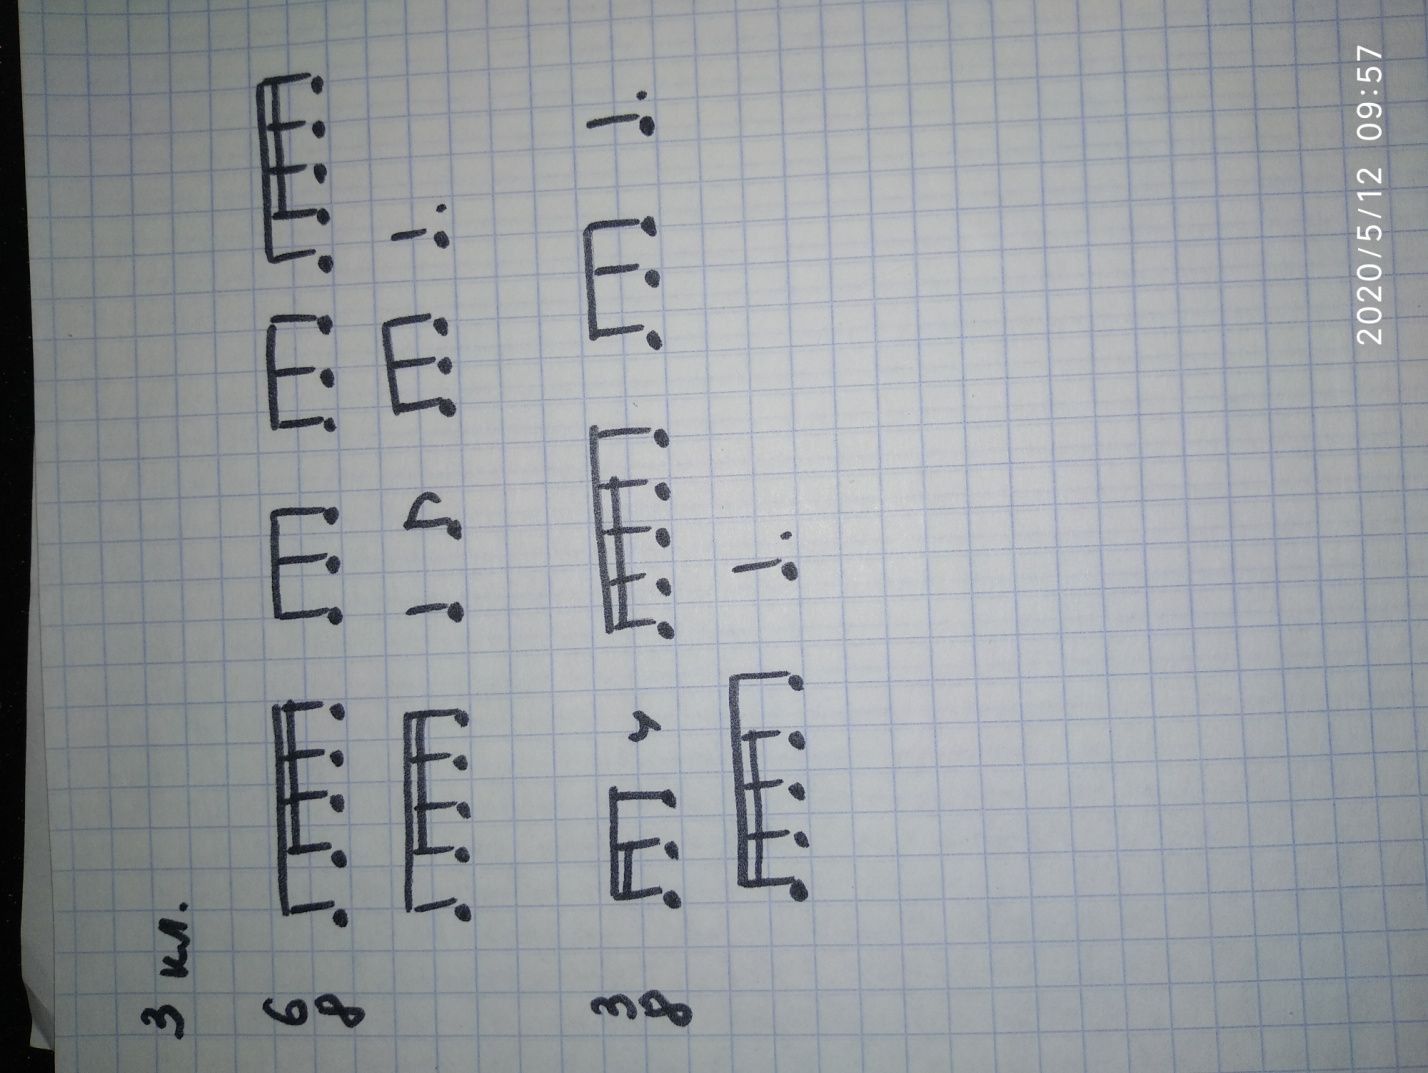 3 кл.
6
8
3
8
2020/5/12 09:57